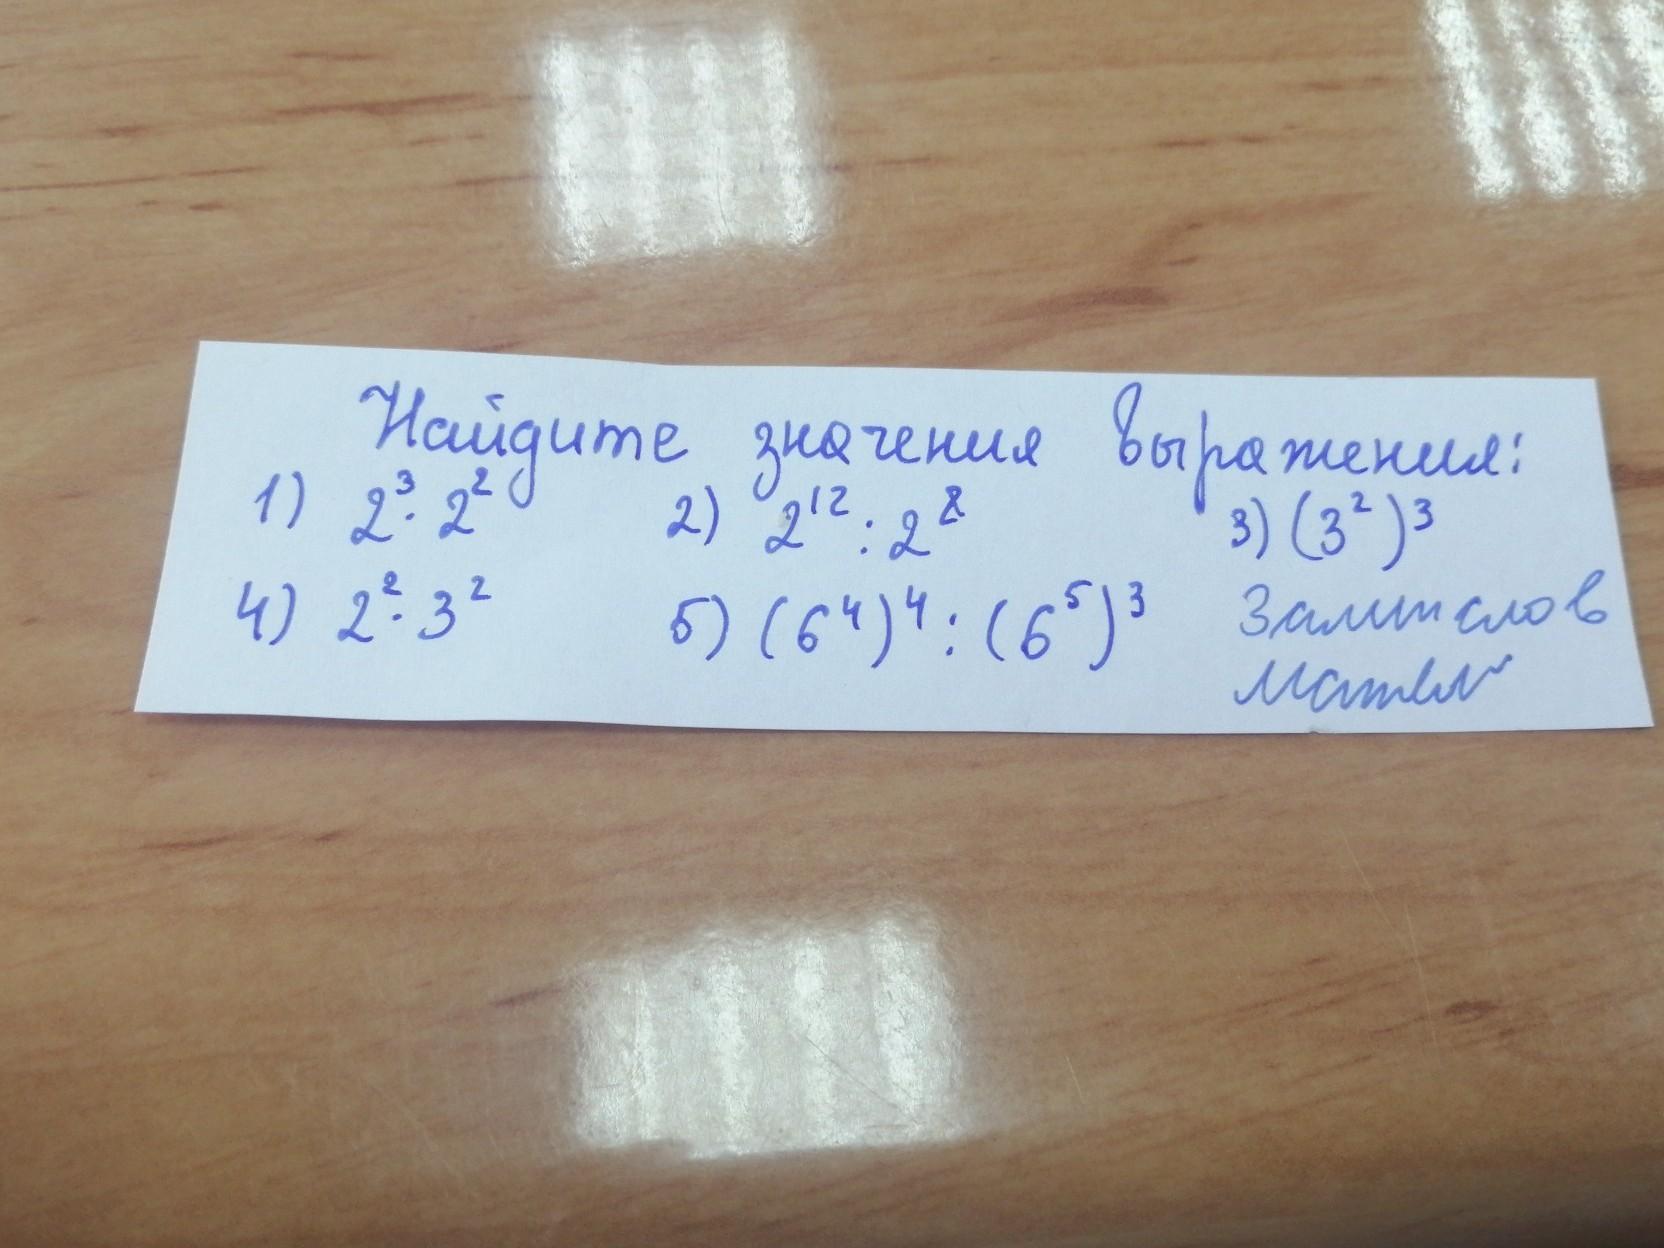 Найдите значения выражения:
1) 2³ · 2² 2) 2¹² : 2⁸ 3) (3²)³
4) 2² · 3² 5) (6⁴)⁴ : (6⁵)³ Замислов
Матвей